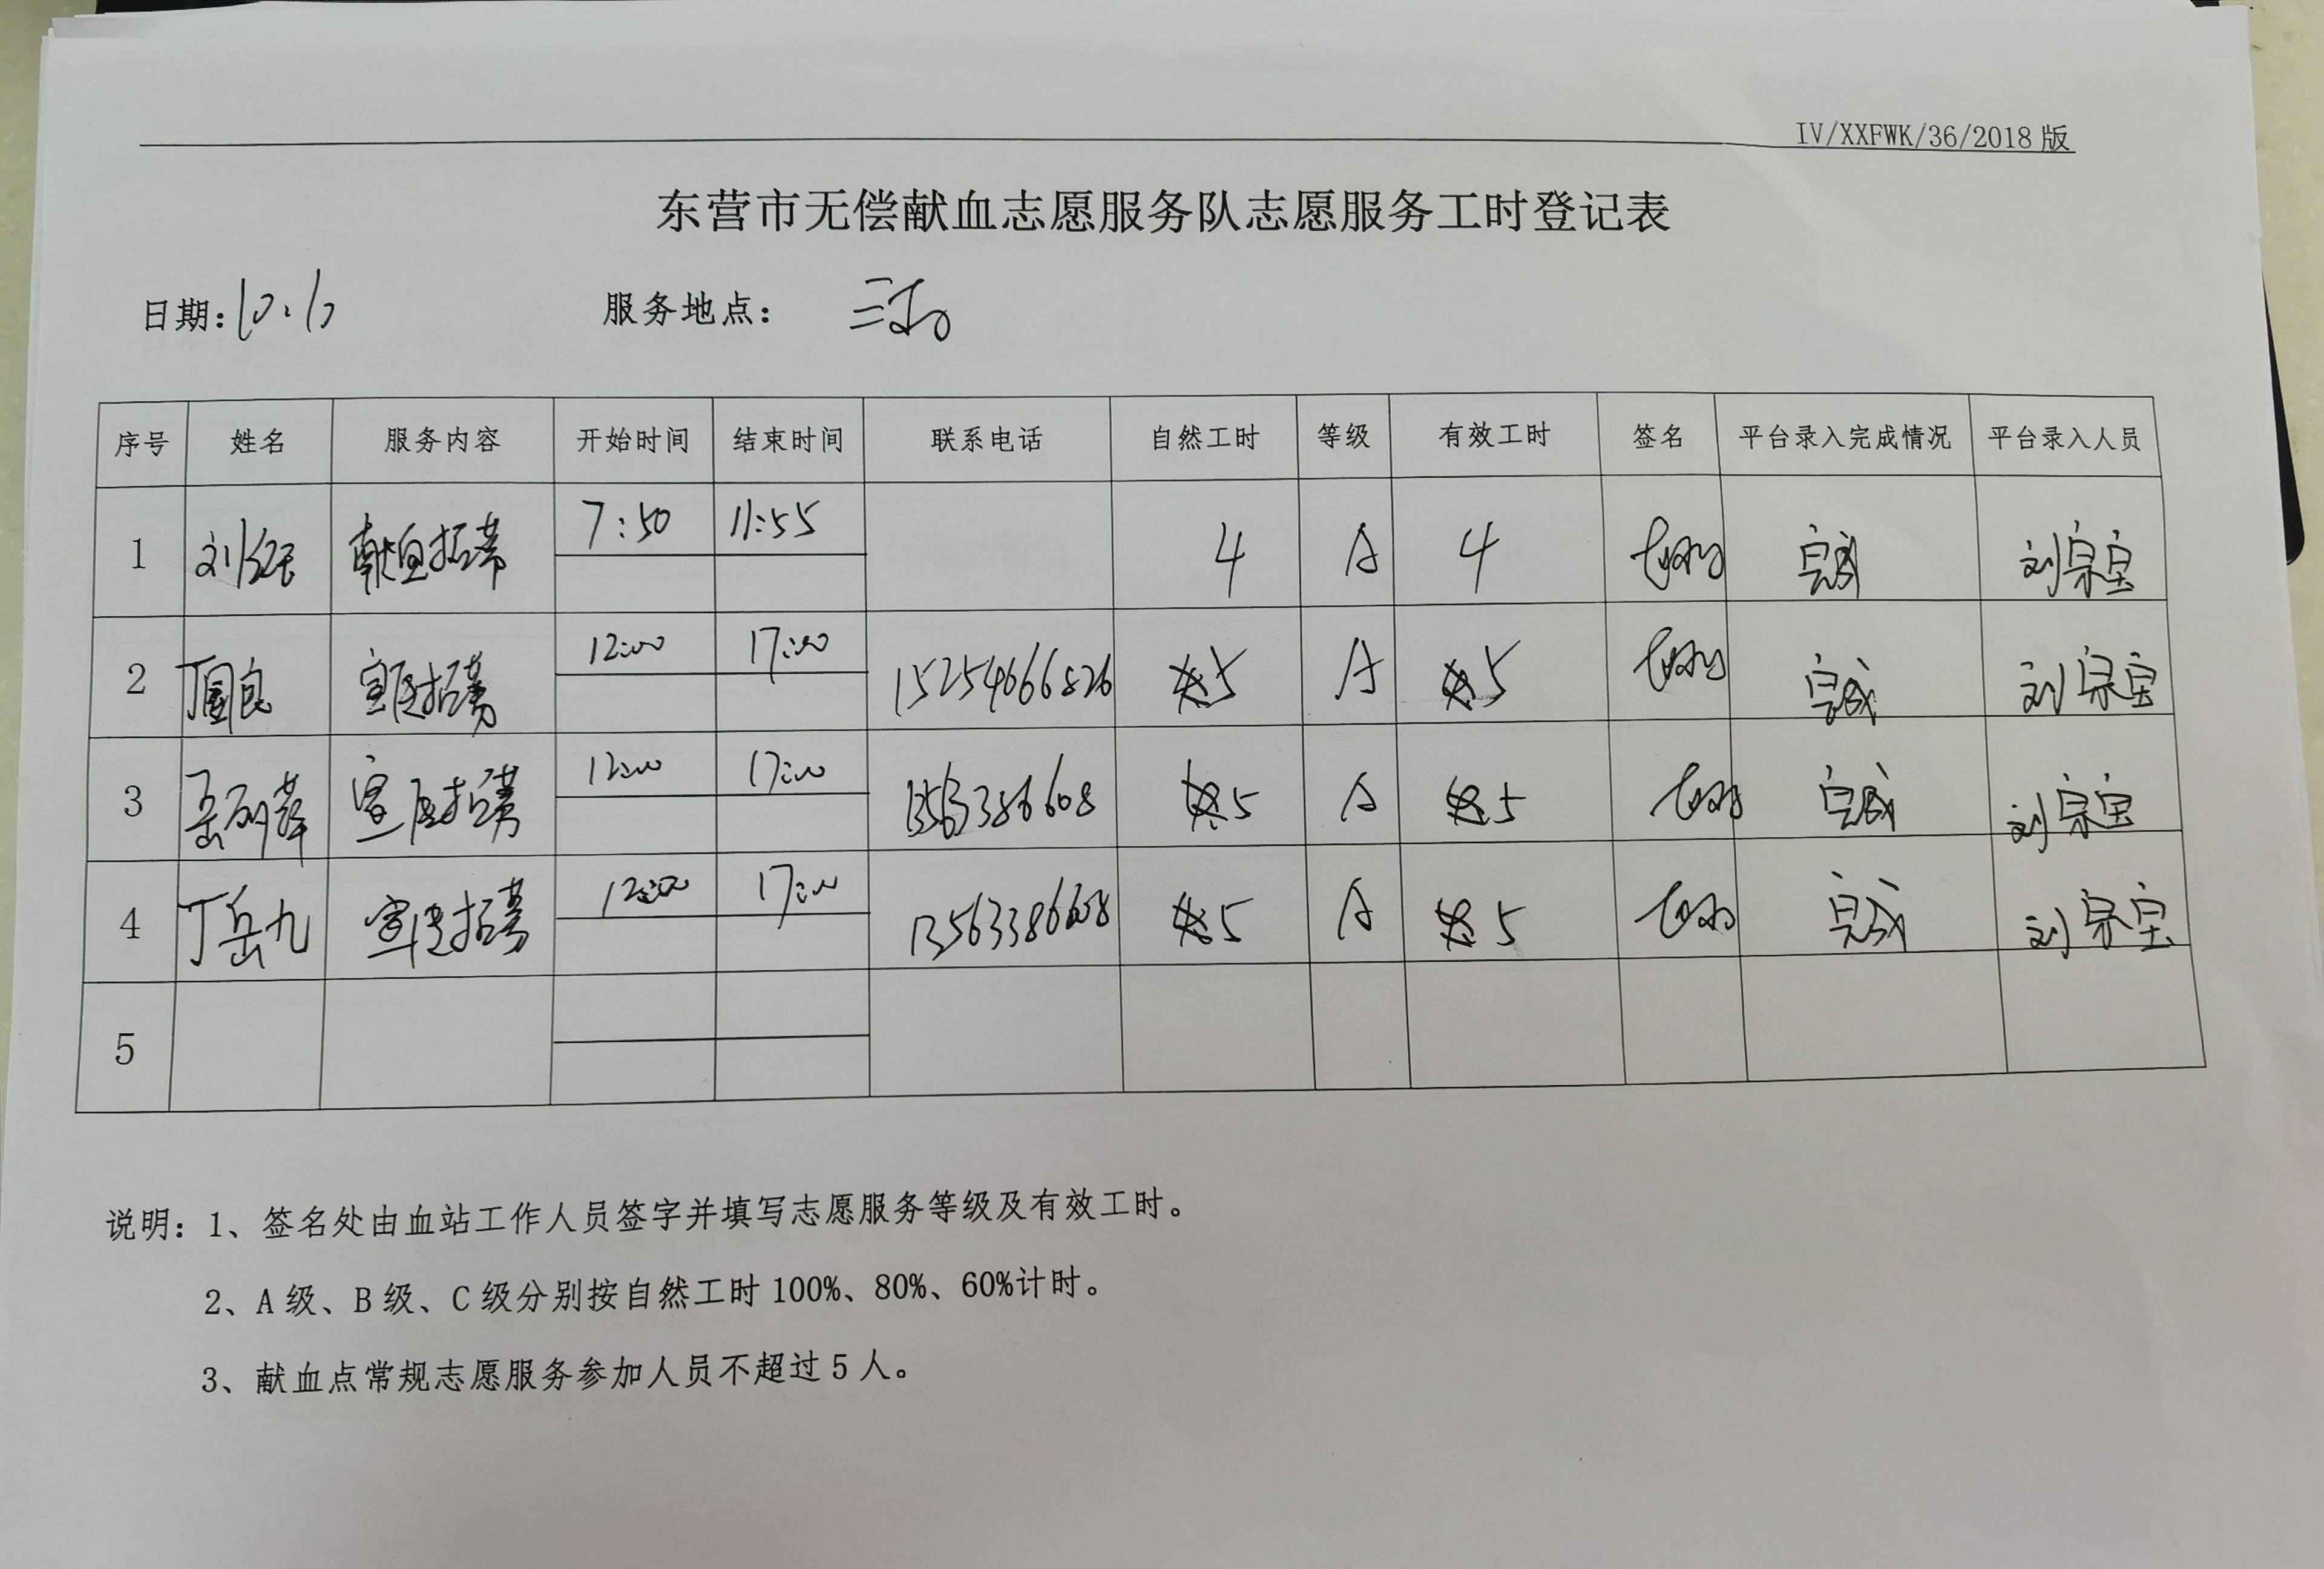 IV/XXFWK/36/2018版
东营市无偿献血志愿服务队志愿服务工时登记表
日期: 服务地点：
序号 姓名 服务内容 开始时间 结束时间 联系电话 自然工时 等级 有效工时 签名 平台录入完成情况 平台录入人员
1 献血招募 7:50 11:55 4 A 4 完成 刘宗宝
2 丁国良 宣传招募 12:00 17:00 15254666826 5 A 5 完成 刘宗宝
3 宣传招募 12:00 17:00 13563386608 5 A 5 完成 刘宗宝
4 丁岳九 宣传招募 12:00 17:00 13563386608 5 A 5 完成 刘宗宝
5
说明：1、签名处由血站工作人员签字并填写志愿服务等级及有效工时。
2、A级、B级、C级分别按自然工时100%、80%、60%计时。
3、献血点常规志愿服务参加人员不超过5人。